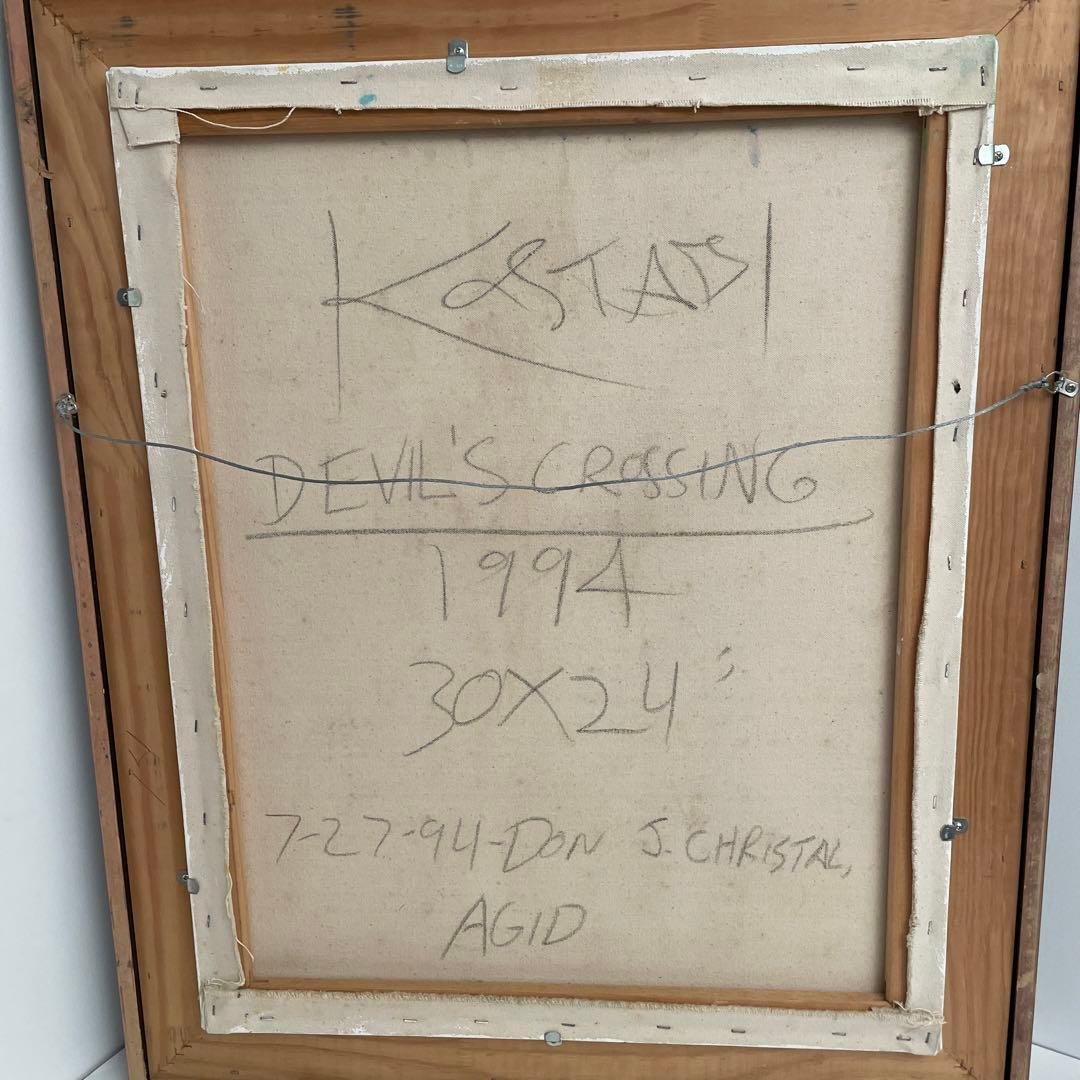 KOSTABI
DEVIL'S CROSSING
1994
30X24"
7-27-94-DON J. CHRISTAL,
AGID